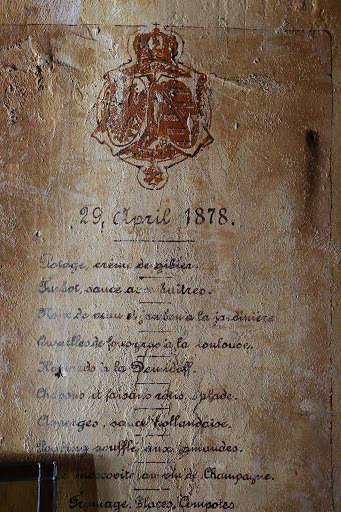 29, April 1878.
Potage, crème de gibier.
Turbot, sauce aux huitres.
Noix de veau et jambon à la jardinière
de foie gras à la Toulouse.
à la Demidoff.
Chapons et faisans rôtis, salade.
Asperges, sauce hollandaise.
Pouding soufflé aux amandes.
moscovite au vin de Champagne.
Fromage, Glaces, Compotes.